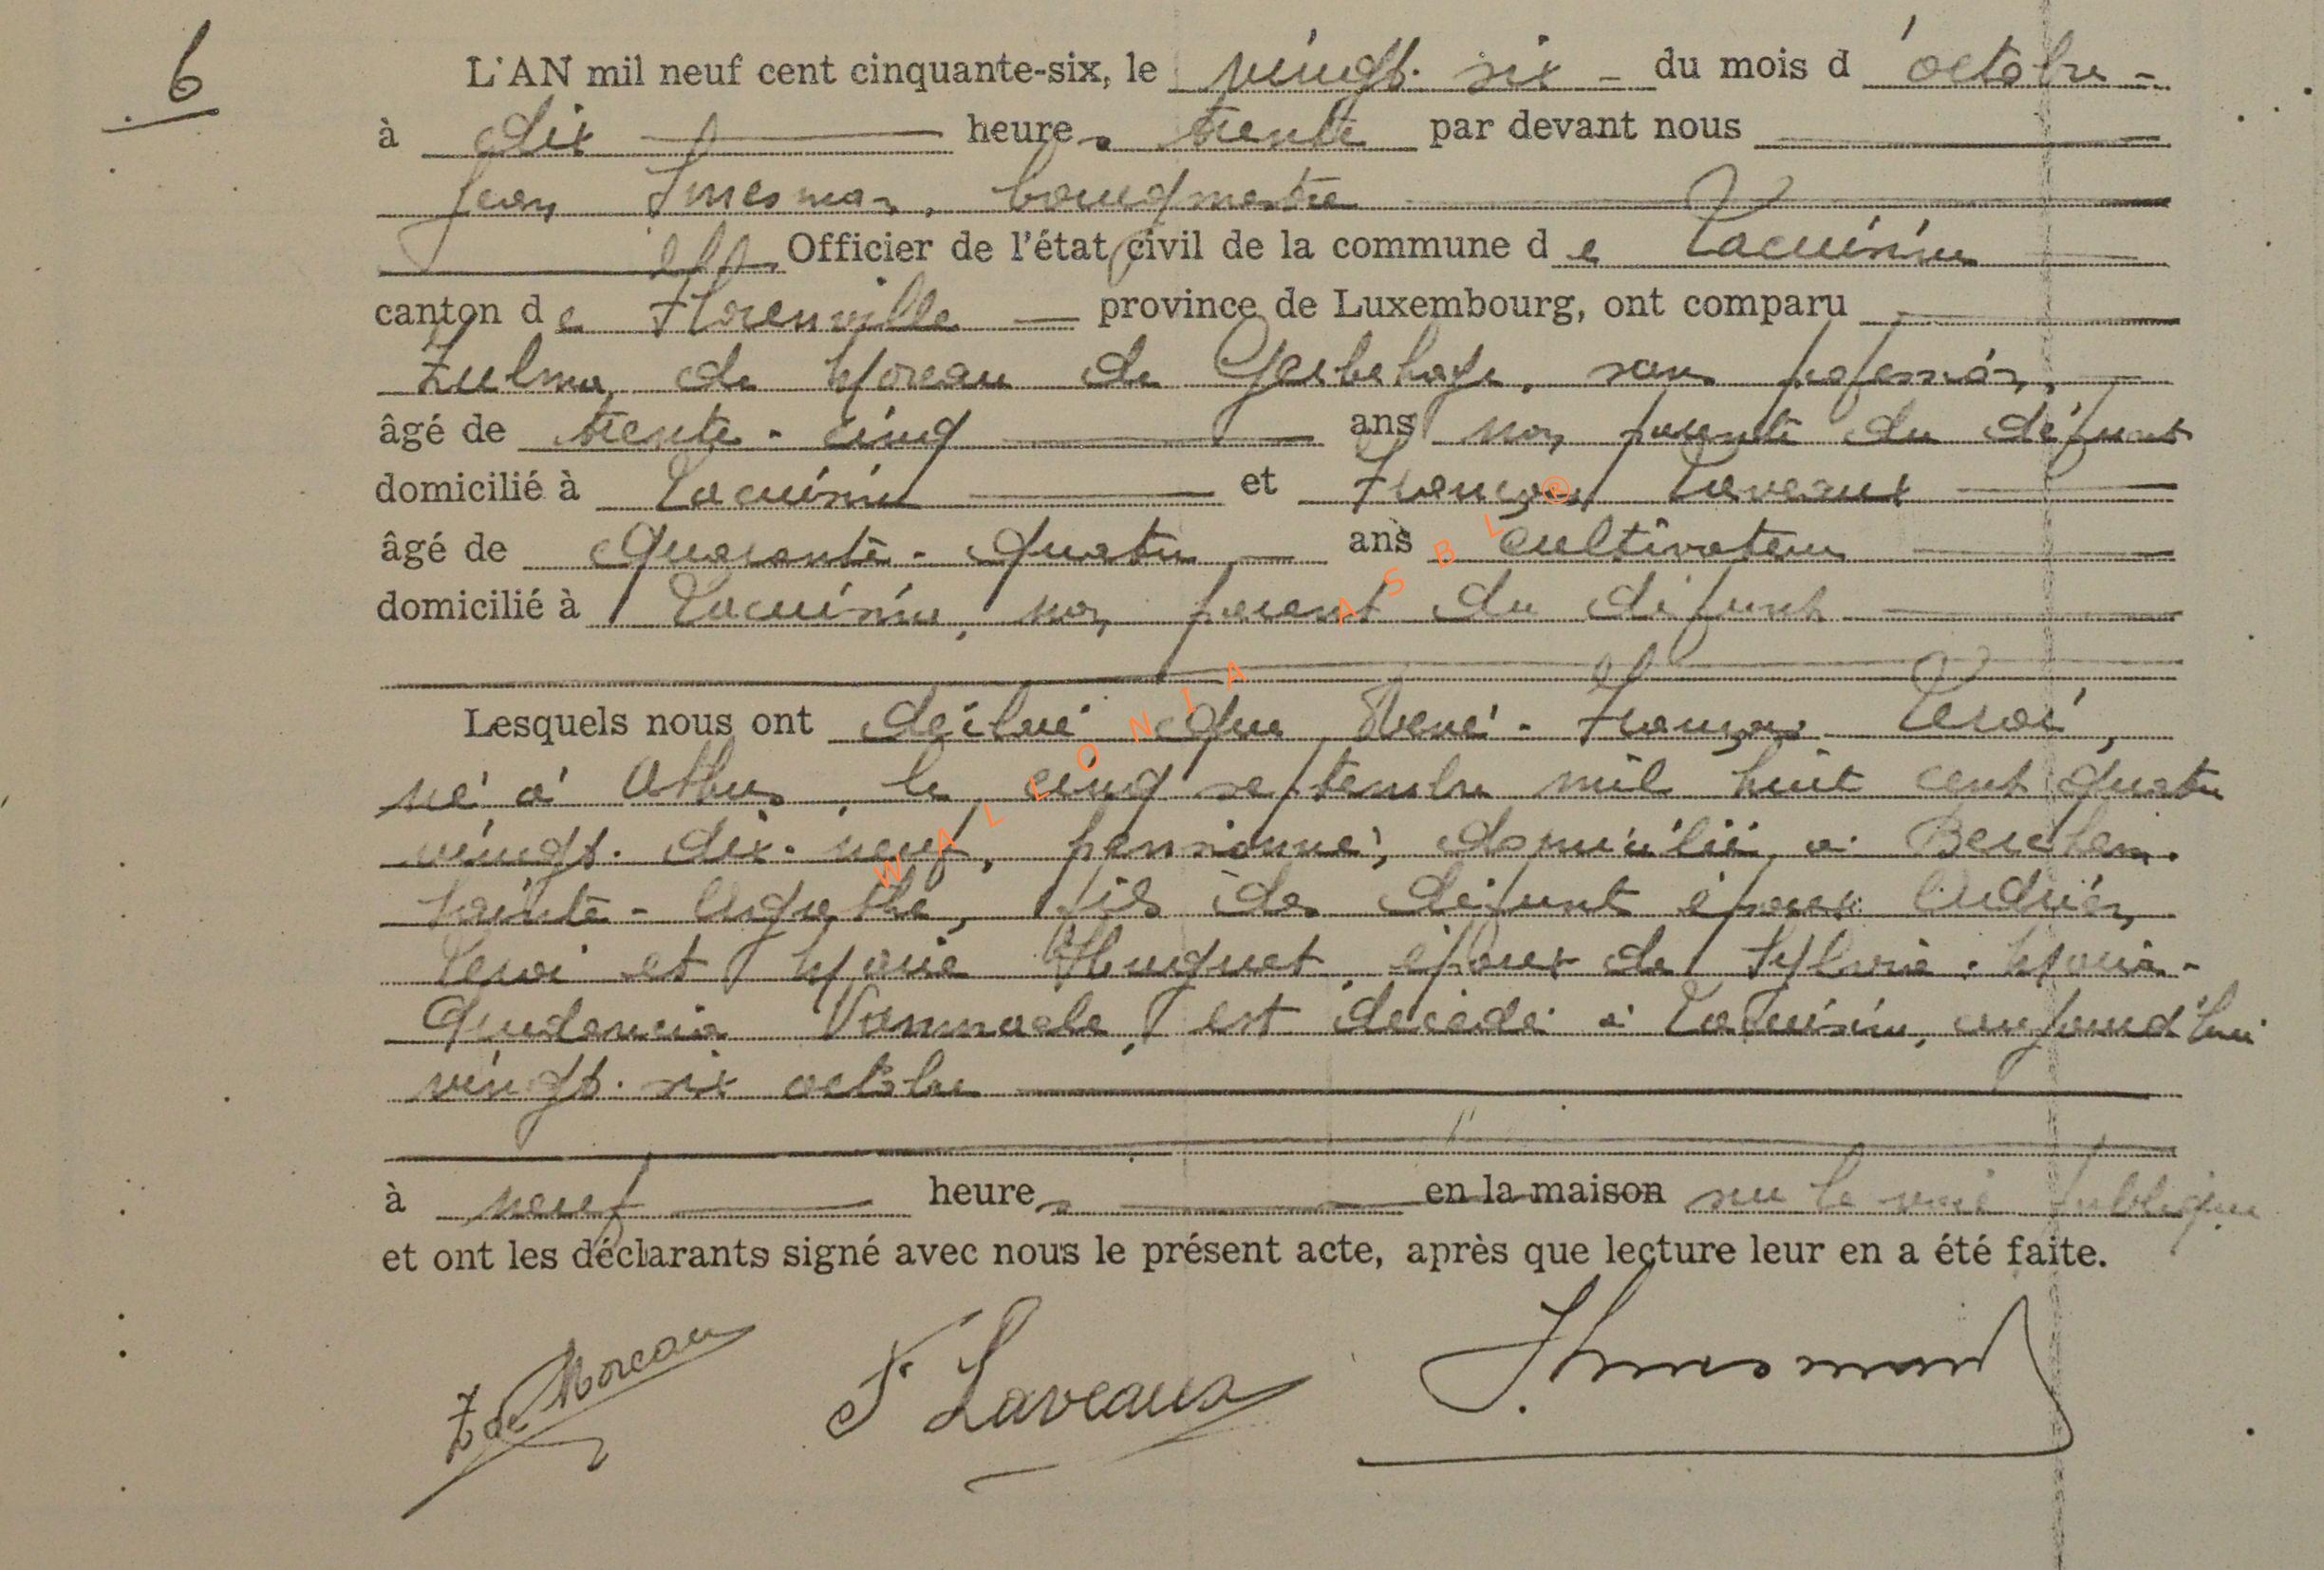 6
L'AN mil neuf cent cinquante-six, le vingt-six du mois d'octobre
à dix heures trente par devant nous
Jean bourgmestre
Officier de l'état civil de la commune de Lacuisine
canton de Florenville province de Luxembourg, ont comparu
Zulma de Moreau de Gerbehaye, sans profession,
âgé de trente-cinq ans non parente du défunt
domicilié à Lacuisine et François Laveaux
âgé de quarante-quatre ans cultivateur
domicilié à Lacuisine, non parent du défunt
Lesquels nous ont déclaré que René-François Leroi,
né à Athus, le cinq septembre mil huit cent quatre
vingt-dix-neuf, pensionné, domicilié à Berchem-
Sainte-Agathe, fils des défunts époux Adrien
Leroi et Marie Huguet, époux de Sylvie-Marie-
Vannaele, est décédé à Lacuisine, aujourd'hui
vingt-six octobre
à neuf heures en la maison sur la voie publique
et ont les déclarants signé avec nous le présent acte, après que lecture leur en a été faite.
Z de Moreau F Laveaux
WALLONIA ASBL ®